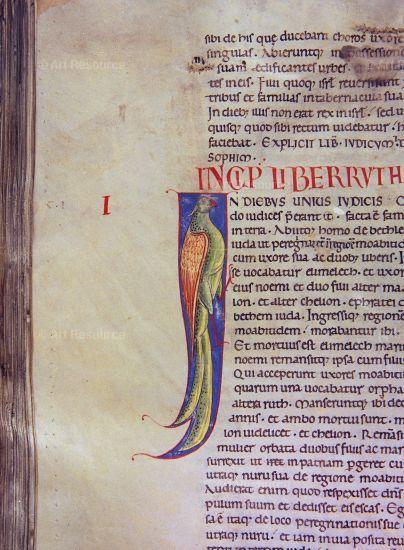 sibi de his que ducebant choros uxore
singulas. Abieruntq; in possessione
suam edificantes urbes.
te in eis. Filii quoq; isrl reuersi sunt
tribus et familias in tabernacula sua
In dieb; illis non erat rex in isrl. sed u
quisq; quod sibi rectum uidebatur. h
faciebat. EXPLICIT LIB. IVDICVM.
SOPHIM.
INCIP LIBER RVTH
I
IN DIEBUS UNIUS IUDICIS. Q
do iudices p̄erant it. facta ē fam
in terra. Abiitq; homo de bethle
iuda ut peregrinaretur in regione moabitid
cum uxore sua ac duob; liberis. I
se uocabatur elimelech. et uxor
eius noemi et duo filii alter ma
lon. et alter chelion. ephratei d
bethem iuda. Ingressiq; regione
moabitidem. morabantur ibi.
Et mortuus est elimelech mari
noemi remansitq; ipsa cum filiis
Qui acceperunt uxores moabiti
quarum una uocabatur orpha
altera ruth. Manseruntq; ibi dec
annis. et ambo mortui sunt. m
lon uidelicet. et chelion. Remāsi
mulier orbata duobus filiis ac ma
surrexit ut in patriam p̄geret cu
utraq; nuru sua de regione moabi
Audierat enim quod respexisset dn̄s
pulum suum et dedisset eis escas. Eg
sa ē itaq; de loco peregrinationis sue
utraq; nuru. et iam in uia posita reu
Art Resource
Art Resource
Art Resource